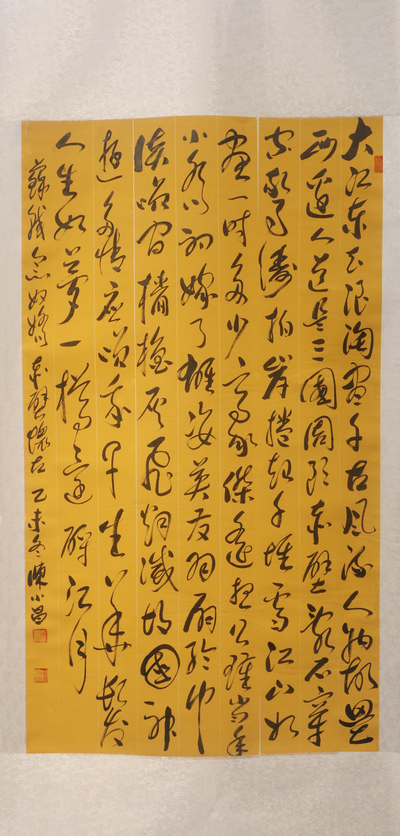 大江东去浪淘尽千古风流人物故垒
西边人道是三國周郎赤壁乱石穿
空惊涛拍岸捲起千堆雪江山如
画一时多少豪傑遥想公瑾当年
小乔初嫁了雄姿英发羽扇纶巾
谈笑间樯橹灰飞烟灭故國神
遊多情应笑我早生华发
人生如梦一樽还酹江月
蘇軾念奴娇赤壁懷古 乙未冬陳小昌